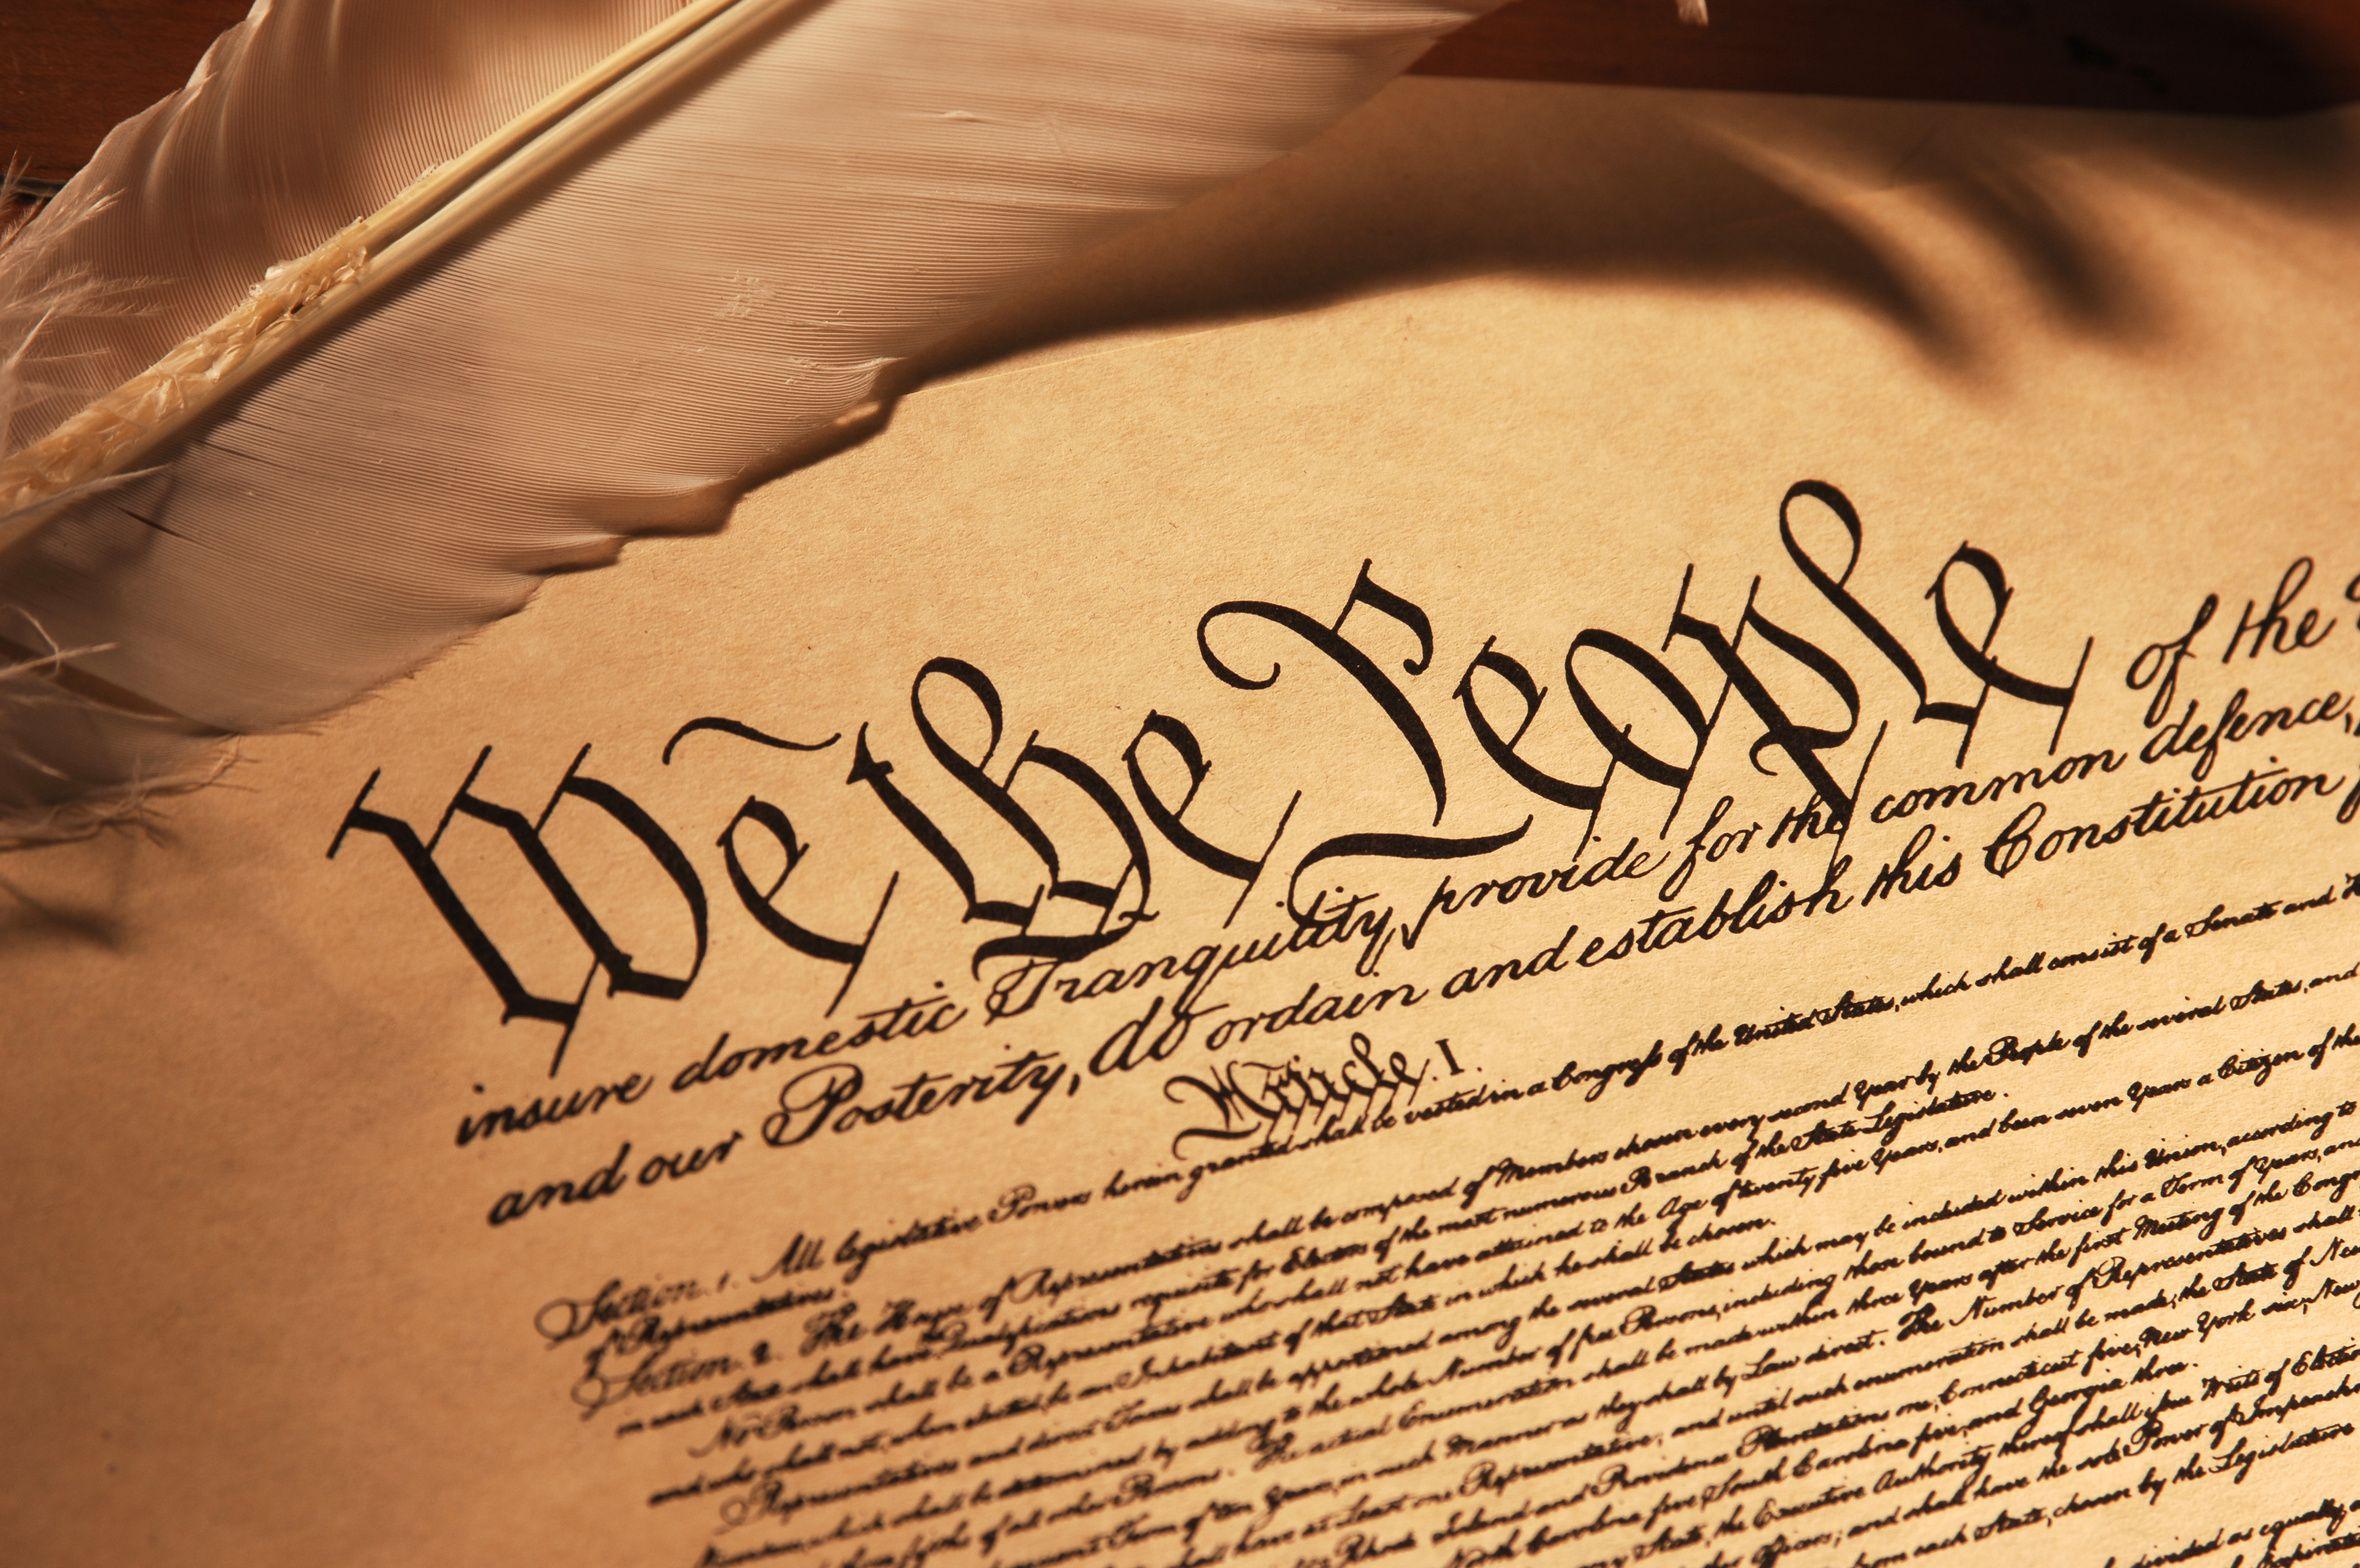 We the People of the
insure domestic Tranquility, provide for the common defence,
and our Posterity, do ordain and establish this Constitution
Article. I.
Section. 1. All legislative Powers herein granted shall be vested in a Congress of the United States, which shall consist of a Senate and
of Representatives.
Section. 2. The House of Representatives shall be composed of Members chosen every second Year by the People of the several States, and
in each State shall have Qualifications requisite for Electors of the most numerous Branch of the State Legislature.
No Person shall be a Representative who shall not have attained to the Age of twenty five Years, and been seven Years a Citizen of the
and who shall not, when elected, be an Inhabitant of that State in which he shall be chosen.
Representatives and direct Taxes shall be apportioned among the several States which may be included within this Union, according to
Numbers, which shall be determined by adding to the whole Number of free Persons, including those bound to Service for a Term of Years, and
of all other Persons. The actual Enumeration shall be made within three Years after the first Meeting of the
Term of ten Years, in such Manner as they shall by Law direct. The Number of Representatives shall
shall have at Least one Representative; and until such enumeration shall be made, the State of New
Rhode Island and Providence Plantations one, Connecticut five, New York six, New
North Carolina five, South Carolina five, and Georgia three.
State, the Executive Authority thereof shall issue Writs of
other Officers; and shall have the sole Power of
from each State, chosen by the Legislature
divided as equally